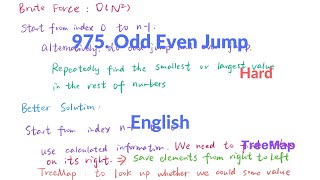 Brute Force : O(N²)
Start from index 0 to n-1.
975. Odd Even Jump
Alternatively do odd jump and even jump.
Repeatedly find the smallest or largest value
Hard
in the rest of numbers
Better Solution:
English
Start from index n-
use calculated information. We need to
TreeMap
on its right. ⇒ save elements from right to left
TreeMap : to look up whether we could some value